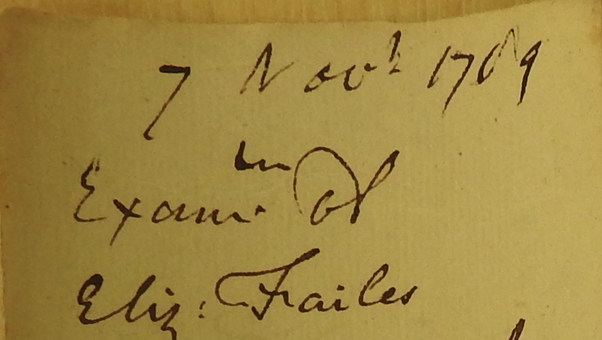 7 Novr 1789
Examn of
Eliz: Frailes